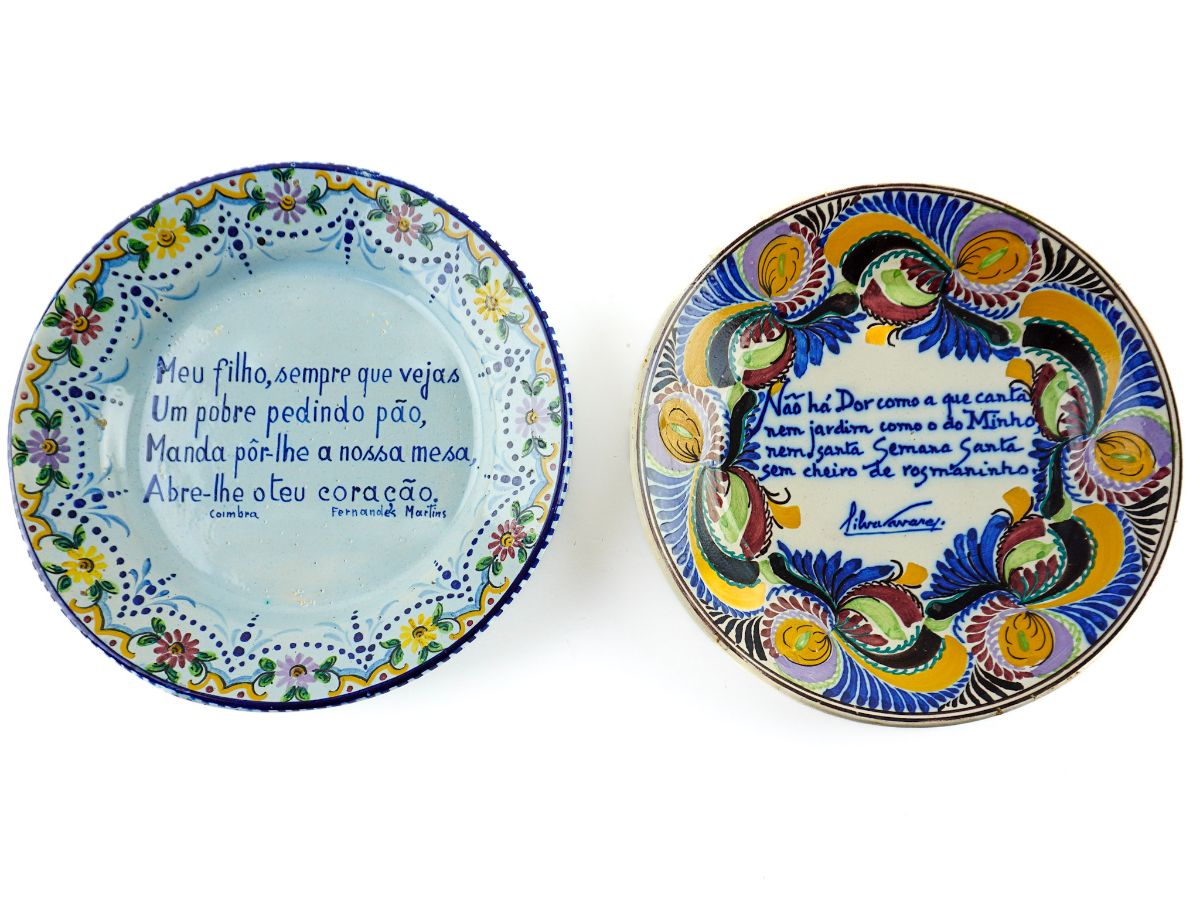 Meu filho, sempre que vejas
Um pobre pedindo pão,
Manda pôr-lhe a nossa mesa,
Abre-lhe o teu coração.
Coimbra Fernandes Martins
Não há Dor como a que canta
nem jardim como o do Minho,
nem santa Semana Santa
sem cheiro de rosmaninho.
Silva Tavares.